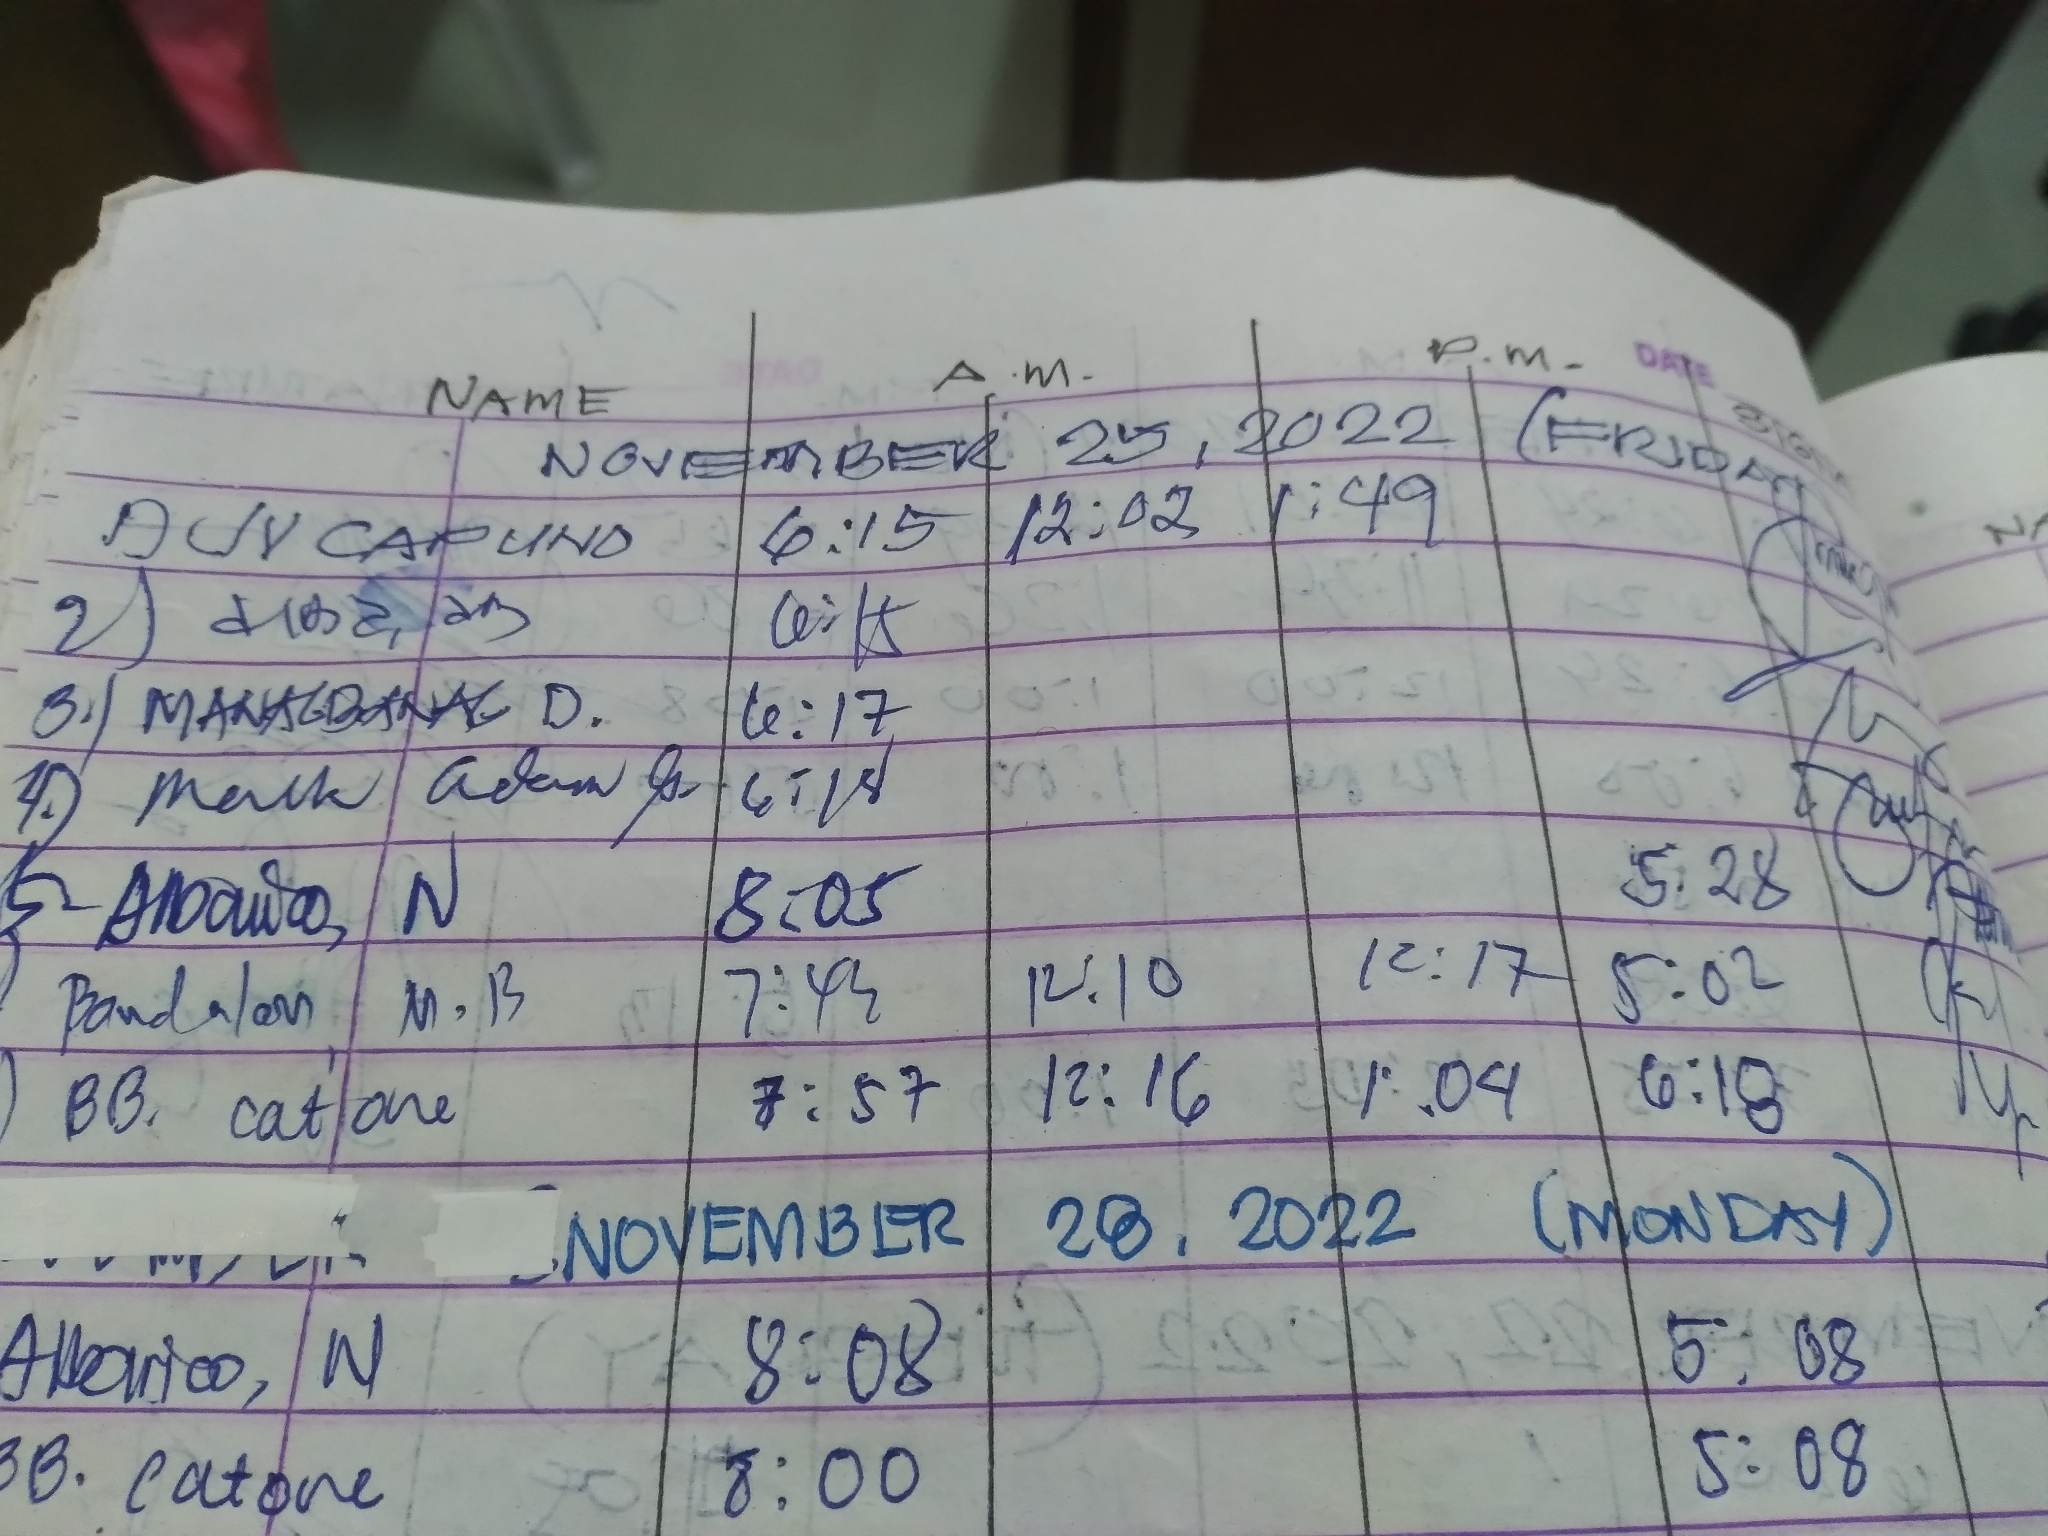 NAME A.M. P.M. DATE
NOVEMBER 25, 2022 (FRIDAY)
1) JV CAPUNO 6:15 12:02 1:49
2) 6:15
3.) MANAGBANAG D. 6:17
4.) Mark Adam G. 6:18
5 Albanico, N 8:05 5:28
Bandalan, M.B 7:43 12:10 12:17 5:02
BB. catone 7:57 12:16 1:04 6:18
NOVEMBER 28, 2022 (MONDAY)
Albanico, N 8:08 5:08
BB. catone 8:00 5:08